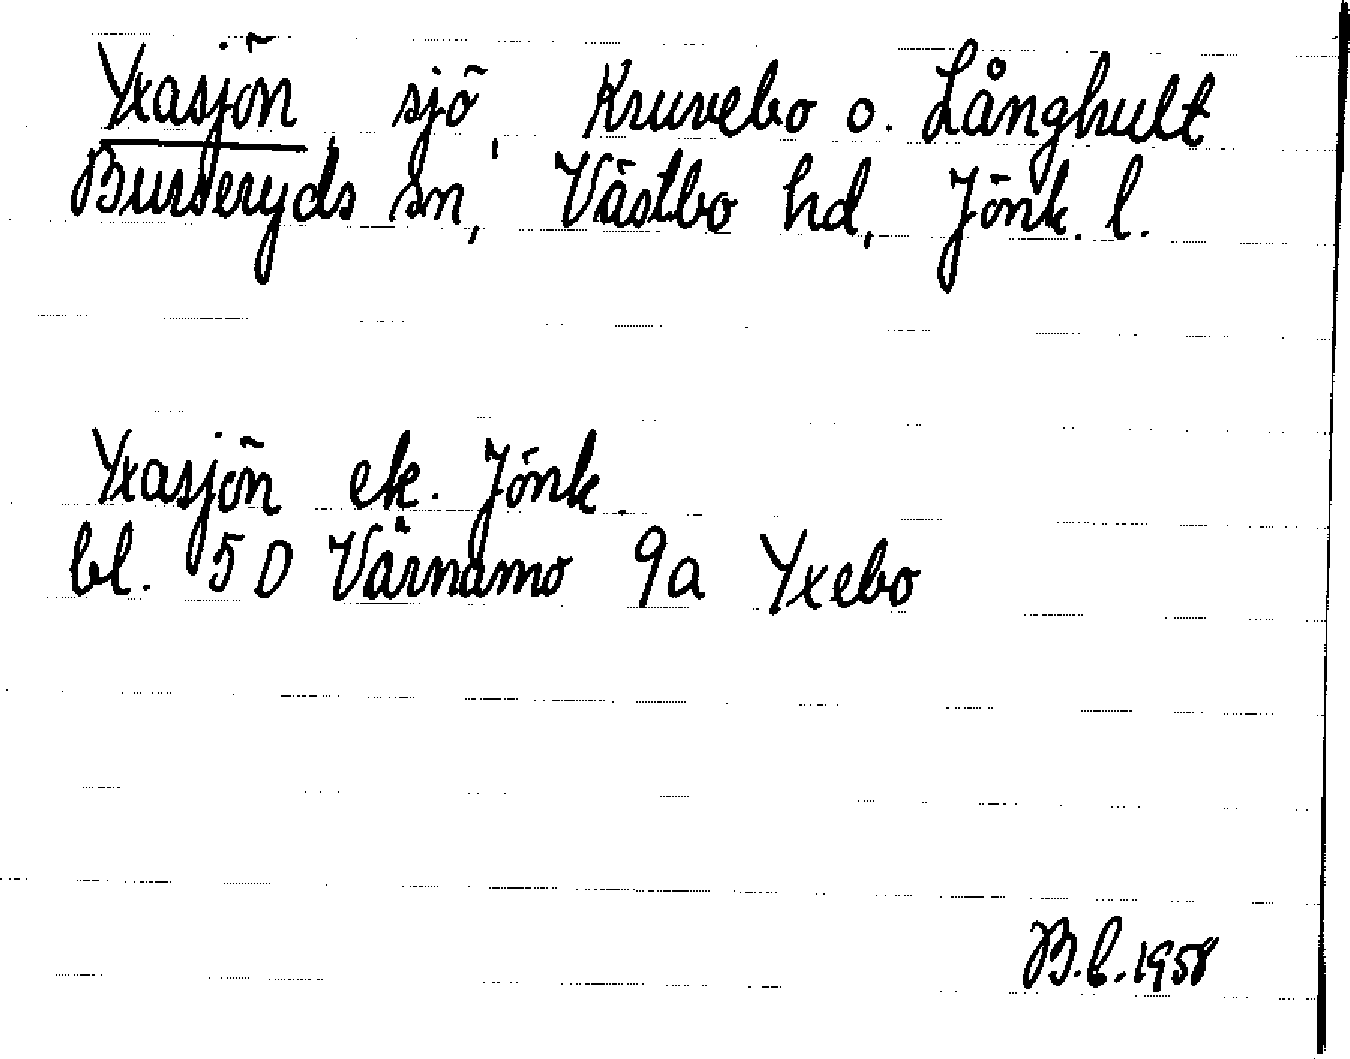 Yxasjön, sjö, Kruvebo o. Långhult
Burseryds sn, Västbo hd, Jönk. l.
Yxasjön ek. Jönk.
bl. 5D Värnamo 9a Yxebo
B.L. 1958